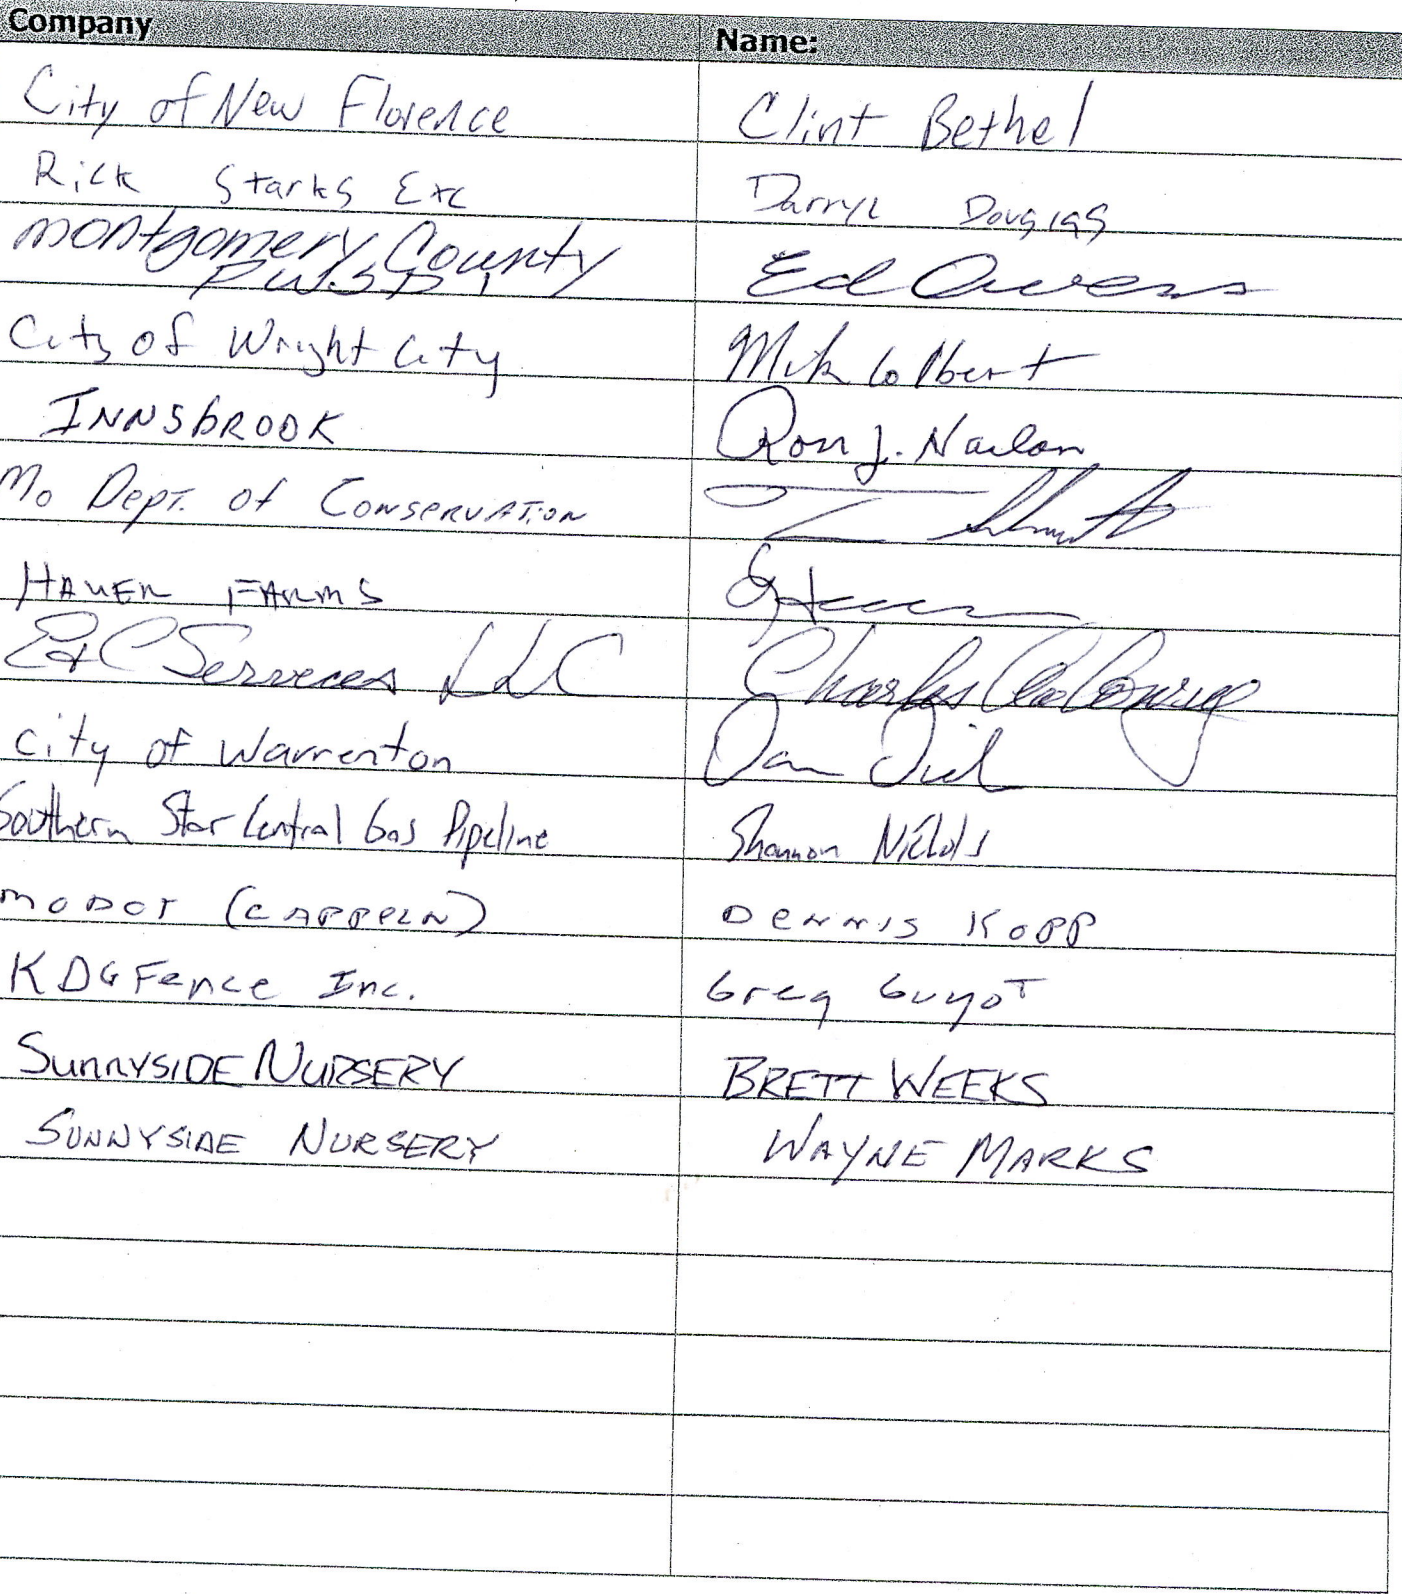 Company Name:
City of New Florence Clint Bethel
Rick Starks Exc Darryl Douglas
Montgomery County Ed Owens
PWSD 1
City of Wright City Mik Colbert
INNSbROOK Ron J. Nailon
Mo Dept. of Conservation
HAUER FARMS
E&C Services LLC Charles
City of Warrenton Dan Diel
Southern Star Central Gas Pipeline Shannon Nichols
MODOT (CAPPELN) DENNIS KOPP
KDG Fence Inc. Greg Guyot
SUNNYSIDE NURSERY BRETT WEEKS
SUNNYSIDE NURSERY WAYNE MARKS